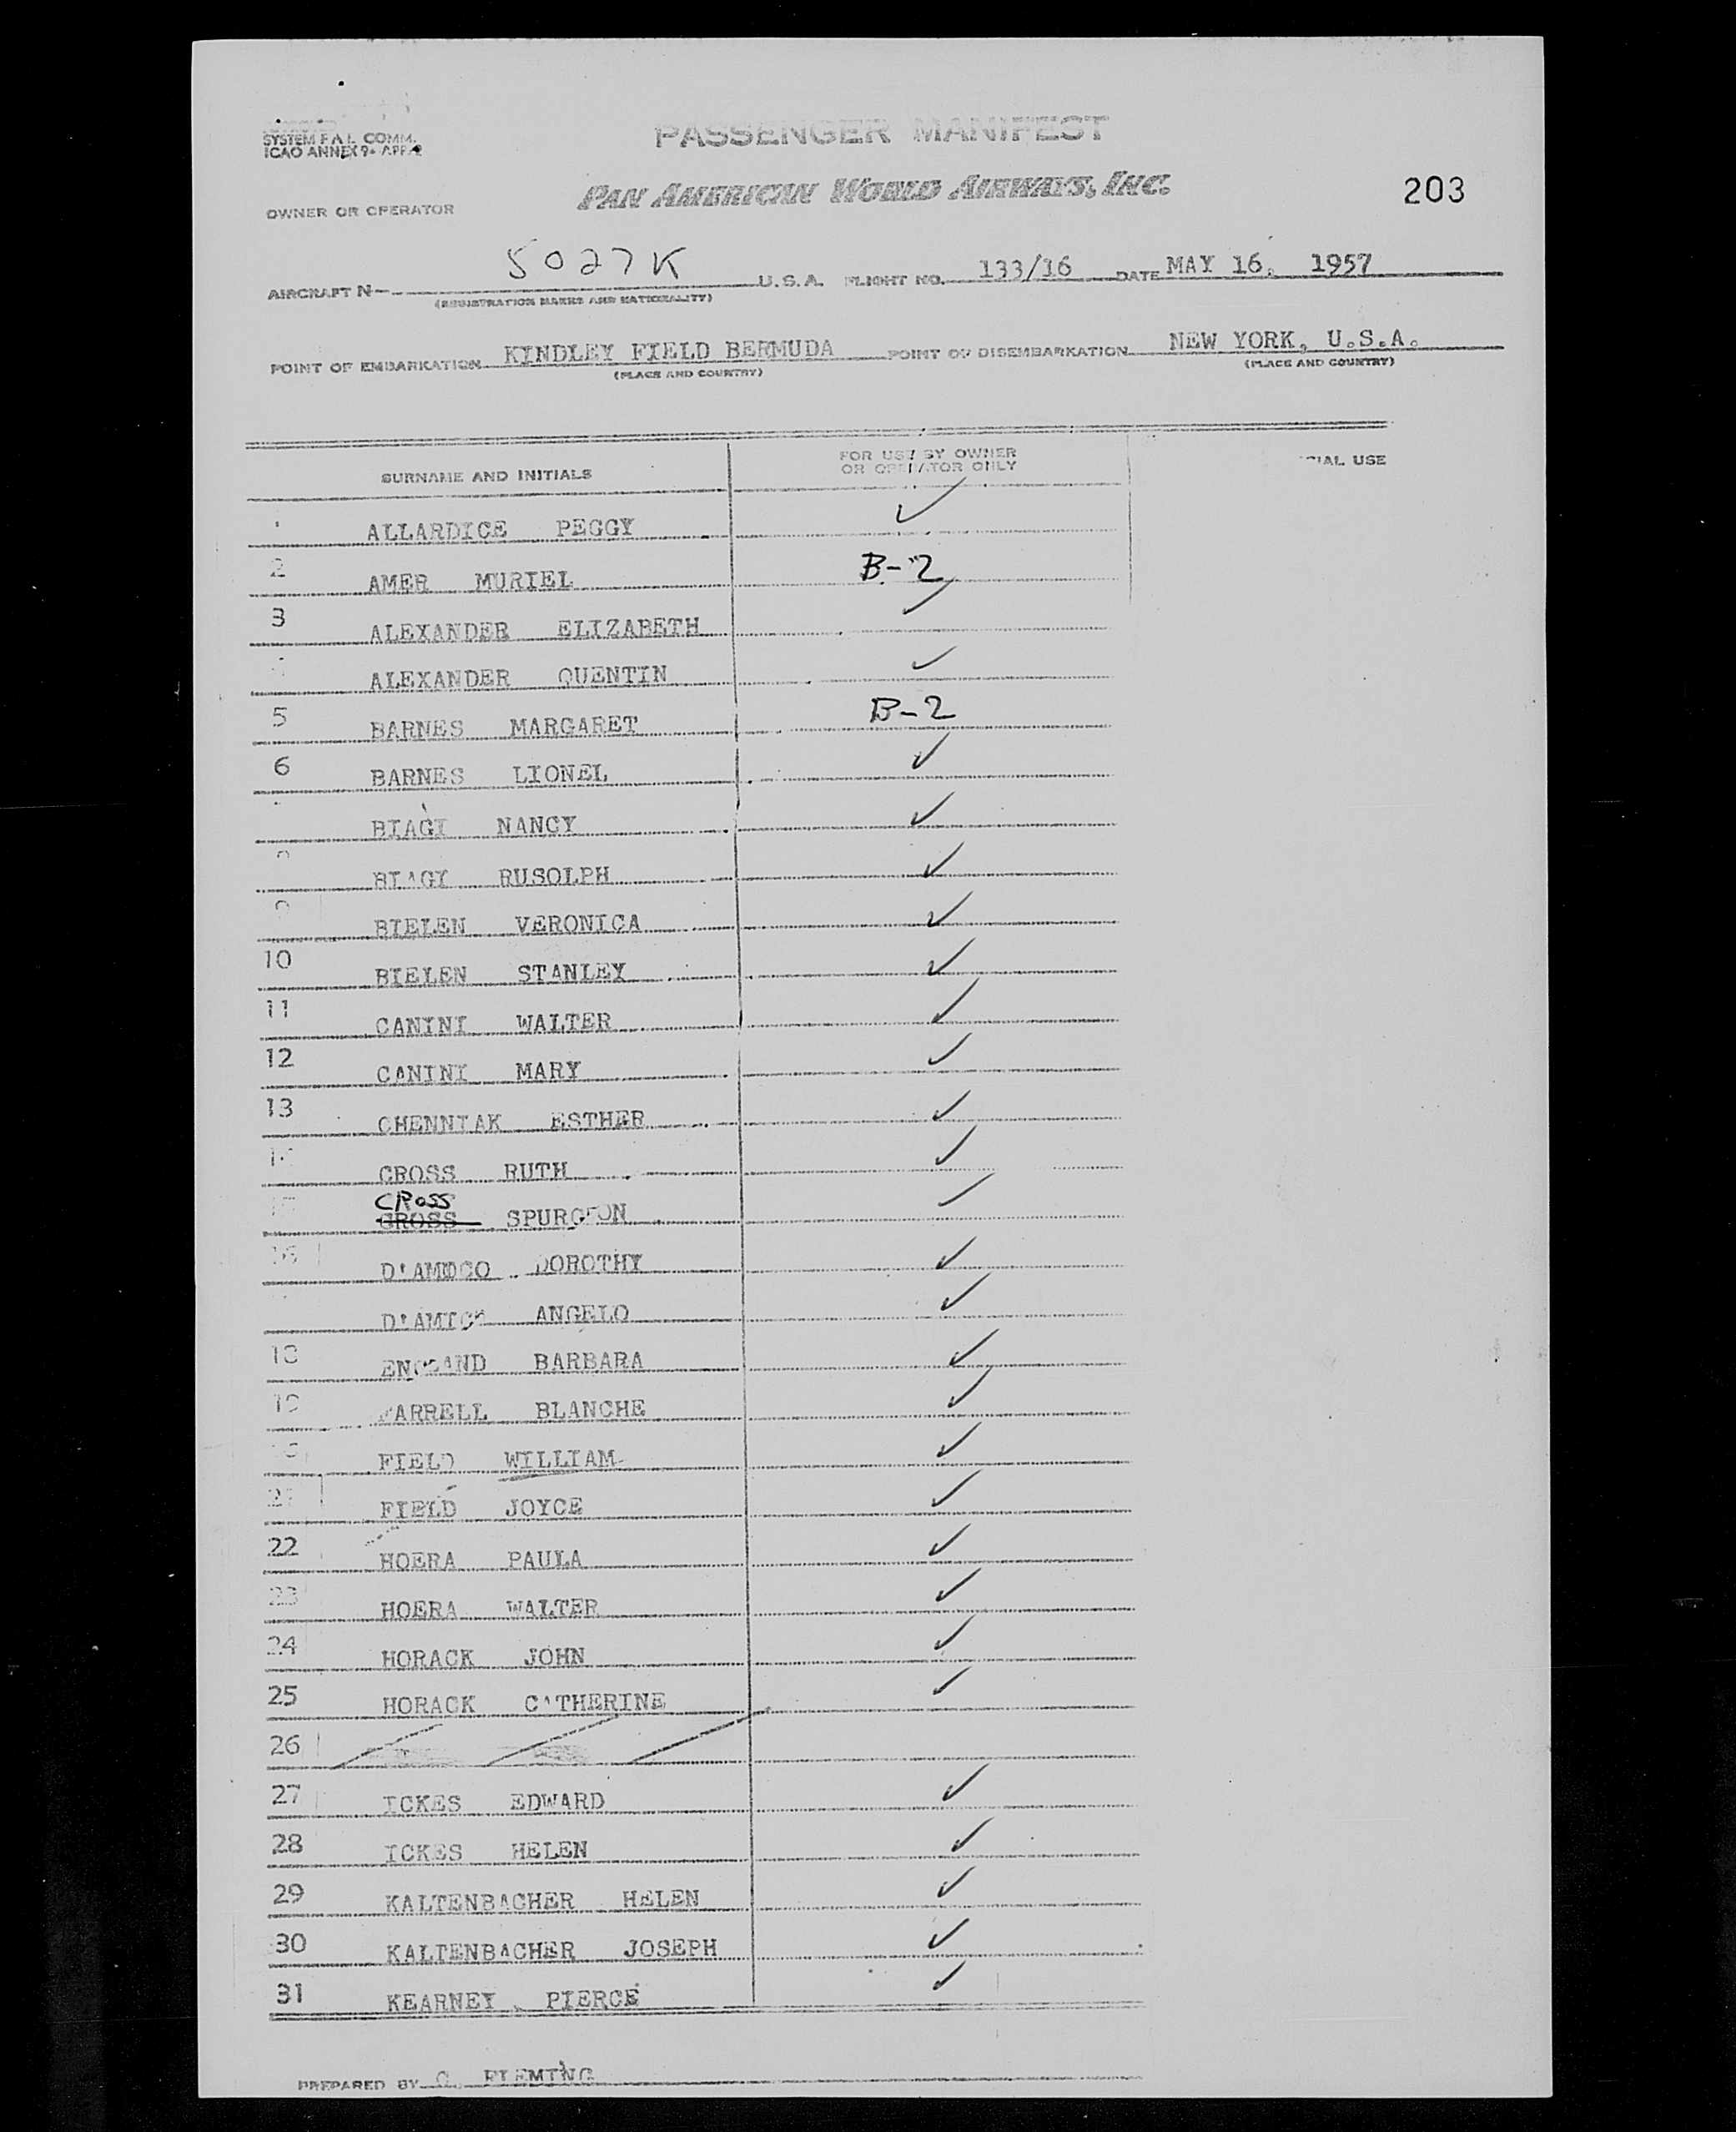 SYSTEM F.A.L. COMM.
ICAO ANNEX 9- APP.
PASSENGER MANIFEST
PAN AMERICAN WORLD AIRWAYS, INC.
203
OWNER OR OPERATOR
AIRCRAFT N- 5027K U.S.A. FLIGHT NO. 133/16 DATE MAY 16, 1957
(REGISTRATION MARKS AND NATIONALITY)
POINT OF EMBARKATION KINDLEY FIELD BERMUDA POINT OF DISEMBARKATION NEW YORK, U.S.A.
(PLACE AND COUNTRY) (PLACE AND COUNTRY)
SURNAME AND INITIALS FOR USE BY OWNER OR OPERATOR ONLY USE
ALLARDICE PEGGY ✓
2 AMER MURIEL B-2
3 ALEXANDER ELIZABETH ✓
ALEXANDER QUENTIN ✓
5 BARNES MARGARET B-2
6 BARNES LIONEL ✓
BIAGI NANCY ✓
BIAGI RUSOLPH ✓
9 BIELEN VERONICA ✓
10 BIELEN STANLEY ✓
11 CANINI WALTER ✓
12 CANINI MARY ✓
13 CHENNIAK ESTHER ✓
CROSS RUTH ✓
CROSS
GROSS SPURGEON ✓
16 D'AMICO DOROTHY ✓
D'AMICO ANGELO ✓
18 ENGLAND BARBARA ✓
19 FARRELL BLANCHE ✓
FIELD WILLIAM ✓
21 FIELD JOYCE ✓
22 HOERA PAULA ✓
23 HOERA WALTER ✓
24 HORACK JOHN ✓
25 HORACK CATHERINE ✓
26
27 ICKES EDWARD ✓
28 ICKES HELEN ✓
29 KALTENBACHER HELEN ✓
30 KALTENBACHER JOSEPH ✓
31 KEARNEY PIERCE ✓
PREPARED BY FLEMING